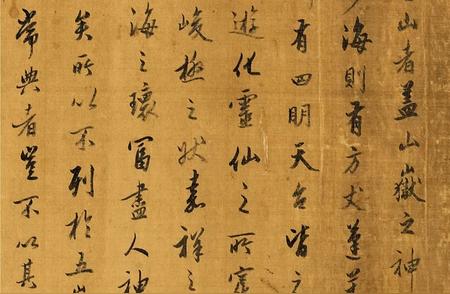 山者蓋山嶽之神
海則有方丈蓬
有四明天台皆
遊化靈仙之所窟
峻極之狀嘉祥之
海之瓌富盡人神
矣所以不列於五
常典者豈不以其